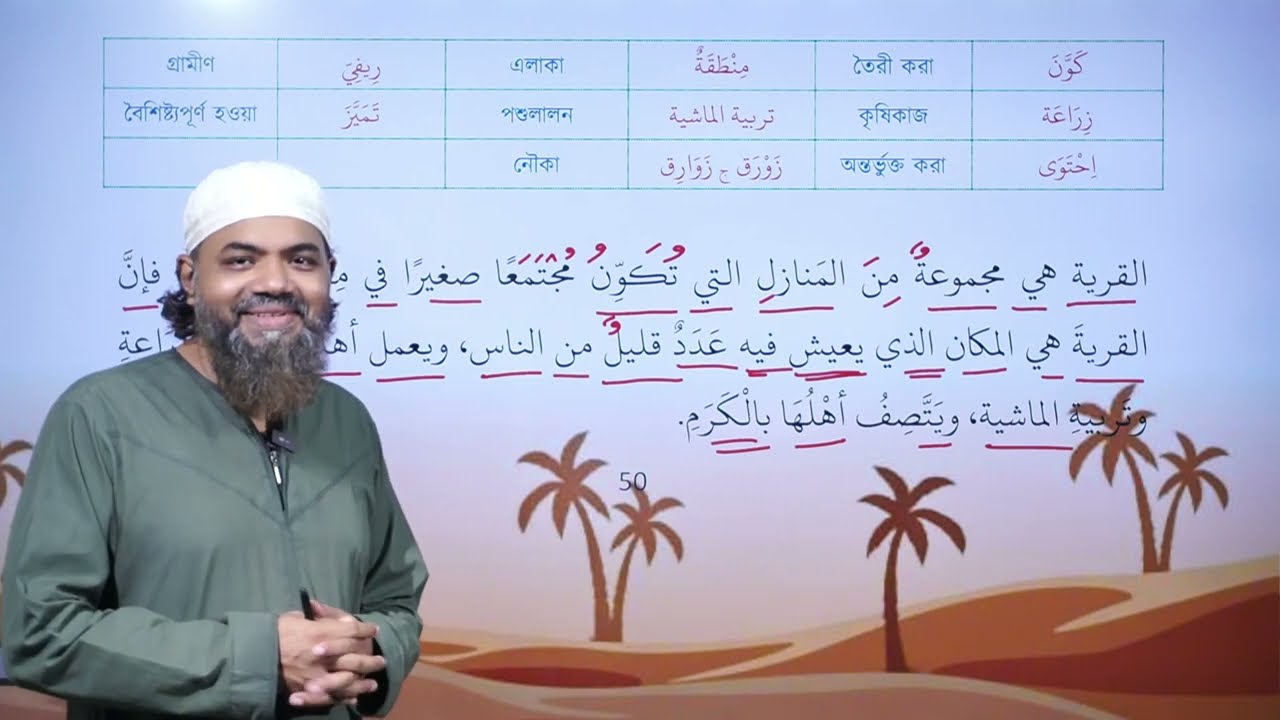 كَوَّنَ তৈরী করা مِنْطَقَةٌ এলাকা رِيفِيَ গ্রামীণ
زِرَاعَة কৃষিকাজ تربية الماشية পশুলালন تَمَيَّزَ বৈশিষ্ট্যপূর্ণ হওয়া
اِحْتَوَى অন্তর্ভুক্ত করা زَوْرَق ج زَوَارِق নৌকা
القرية هي مجموعةٌ مِنَ المَنازلِ التي تُكَوِّنُ مُجْتَمَعًا صغيرًا في فإنَّ
القريةَ هي المكان الذي يعيش فيه عَدَدٌ قليلٌ من الناس، ويعمل
وتَربيةِ الماشية، ويَتَّصِفُ أهْلُهَا بالْكَرَمِ.
50